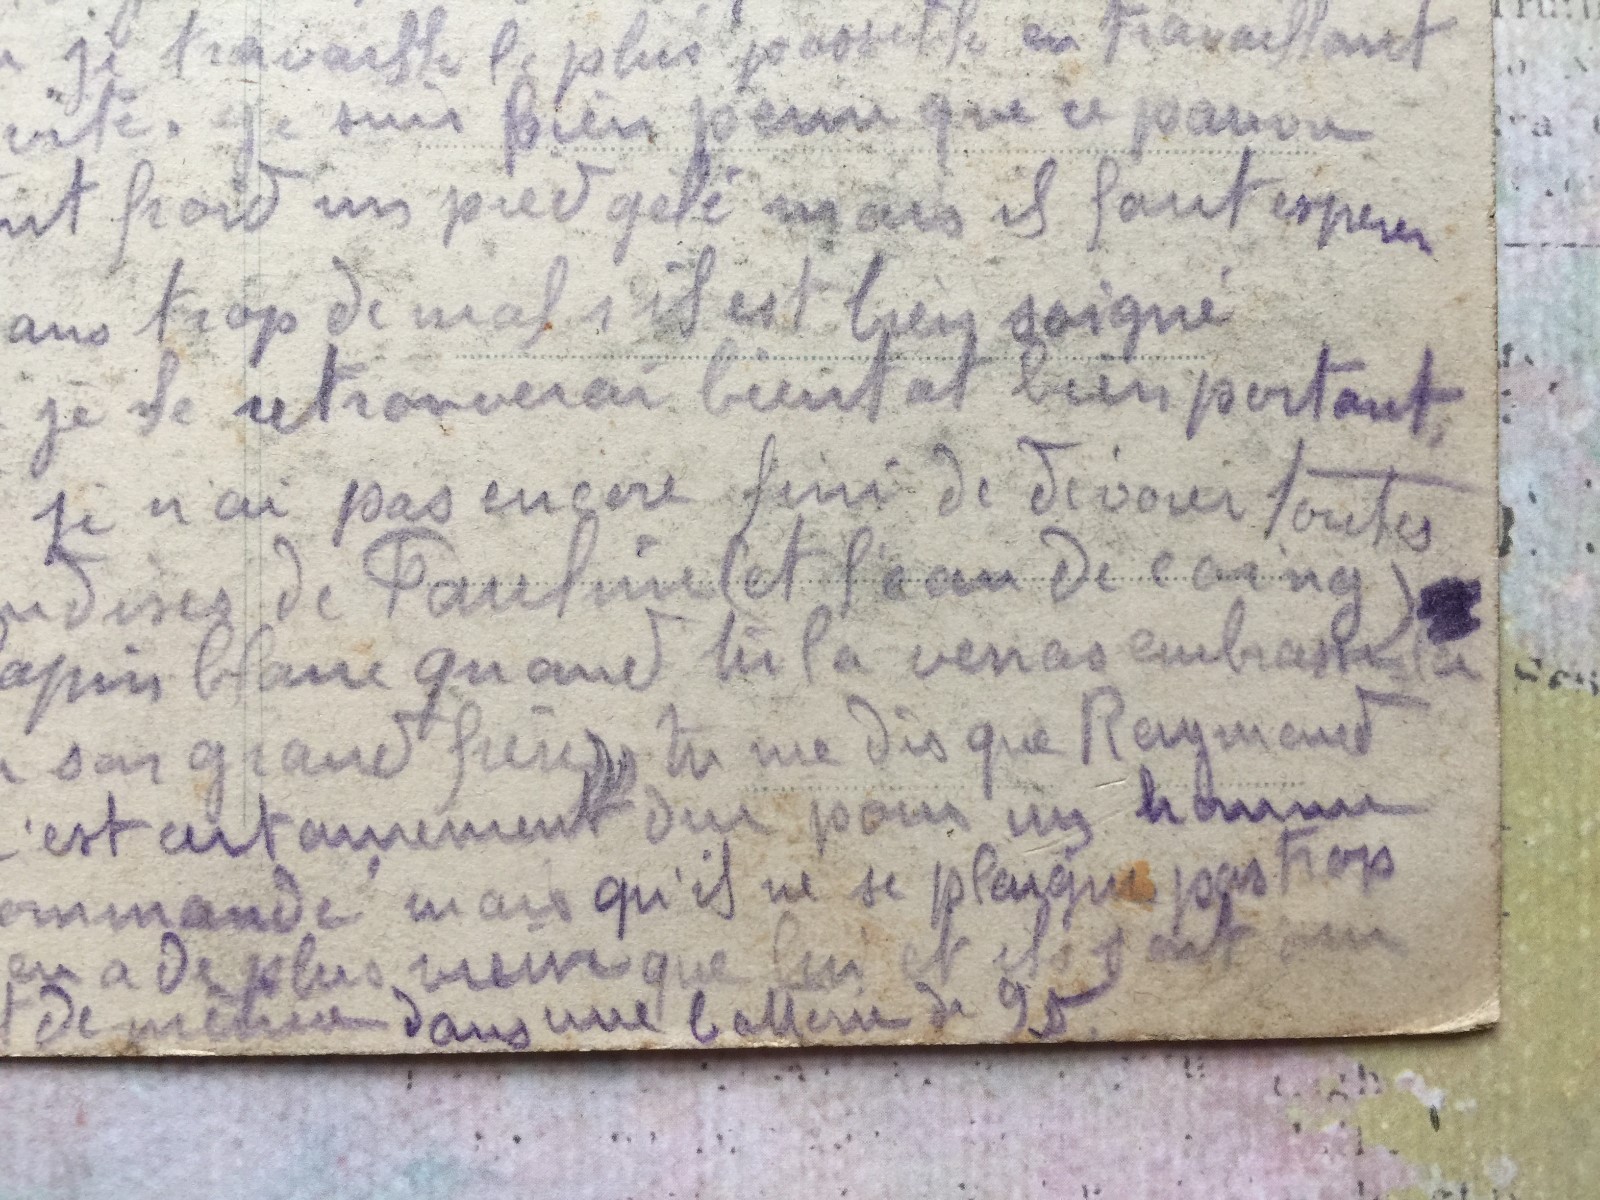 je travaille le plus possible en travaillant
vite. Je suis bien peine que ce pauvre
froid un pied gelé mais il faut esperer
sans trop de mal s'il est bien soigné
je le retrouverai bientot bien portant,
Je n'ai pas encore fini de devorer toutes
de Pauline (et l'eau de coing)
lapin blanc quand tu la verras embrasse la
son grand frère, tu me dis que Raymond
c'est certainement dur pour un homme
commandé mais qu'il ne se plaigne pas trop
en a de plus vieux que lui et ils sont
de même dans une batterie de 95.